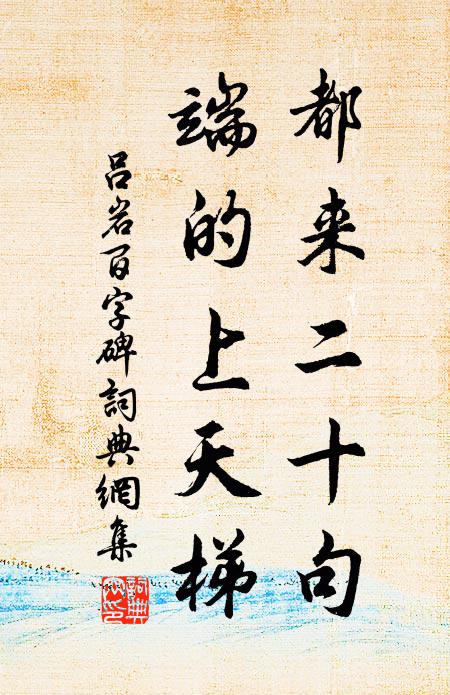 都来二十句
端的上天梯
吕岩百字碑詞典網集